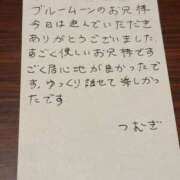 ブルームーンのお兄様
今日は遊んでいただき
ありがとうございました
すごく優しいお兄様です
ごく居心地が良かったで
す、ゆっくり話せて楽しかっ
たです
つむぎ